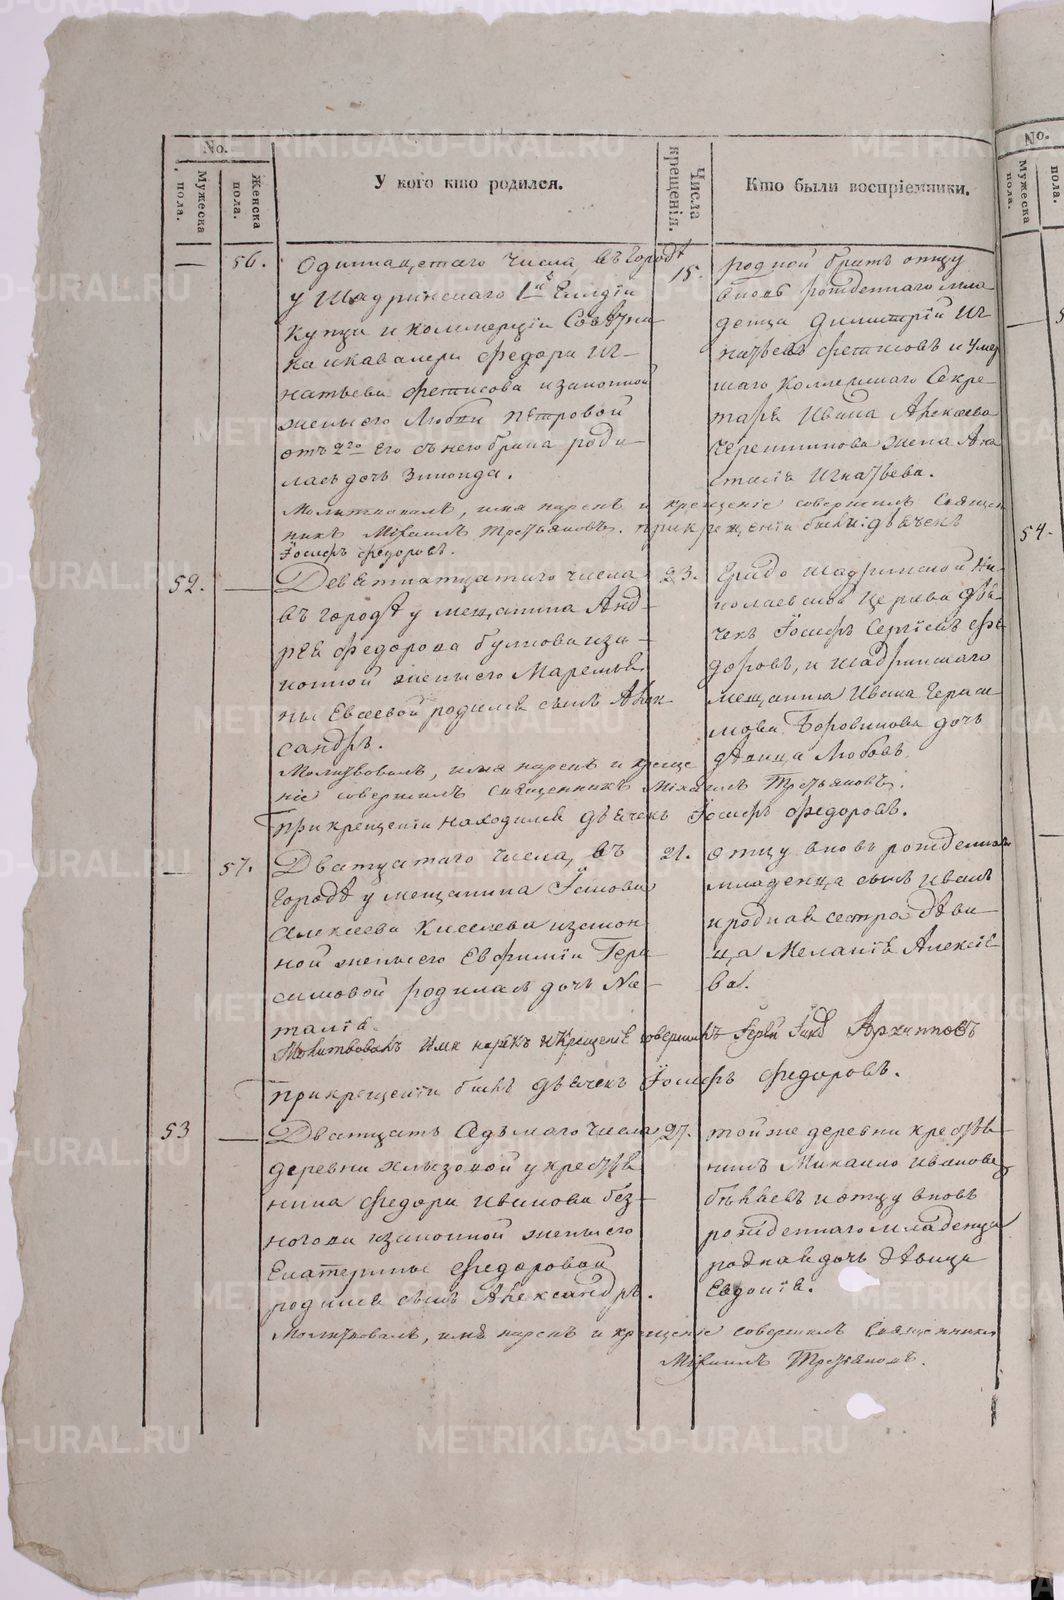 No.
Мужеска пола.
Женска пола.
У кого кто родился.
Числа крещенія.
Кто были воспріемники.
No.
Мужеска пола.
пола.
56.
Одиннацетаго числа, въ городѣ
у Шадринскаго 1й гилдіи
купца и коммерціи Совѣтни
ка и кавалера Федора Иг-
натьева Фетисова и законной
жены его Любви Петровой
отъ 2го его съ нею брака роди
лась дочь Зинаида.
15.
родной братъ отцу
вновь рожденнаго мла-
денца Димитрій Иг-
натьевъ Фетисовъ и умер
шаго Коллежскаго Секре-
таря Ивана Алексѣева
Черепанова жена Ана
стасія Игнатьева.
Молитвовалъ, имя нарекъ и крещеніе совершилъ Священ
никъ Михаилъ Третьяковъ. При крещеніи былъ дьячекъ
Іосифъ Федоровъ.
52.
Девятнатцатаго числа
въ городѣ у мещанина Анд-
рея Федорова и зако-
нной жены его
Евсеевой родился сынъ Алек-
сандръ.
23.
Градо Шадринской Ни-
колаевской церкви дья-
чекъ Іосифъ Сергіевъ Фе-
доровъ, и Шадринскаго
мещанина Ивана Гераси
мова Боровикова дочь
дѣвица Любовь.
Молитвовалъ, имя нарекъ и креще
ніе совершилъ священникъ Михаилъ Третьяковъ.
При крещеніи находился дьячекъ Іосифъ Федоровъ.
57.
Дватцатаго числа, въ
городѣ у мещанина Іакова
Алексеева Киселева и закон-
ной жены его Евфиміи Гера-
симовой родилась дочь На-
талія.
21.
отцу вновь рожденнаго
младенца сынъ Иванъ
и родная сестра дѣви
ца Меланія Алексіе-
ва.
Молитвовалъ имя нарѣкъ и крещеніе совершилъ Іерей Архиповъ
При крещеніи былъ дьячекъ Іосифъ Федоровъ.
53
Дватцать Седьмаго числа,
деревни Хлызовой у крестья
нина Федора Иванова Без-
ногова и законной жены его
Екатерины Федоровой
родился сынъ Александръ.
27.
той же деревни крестья
нинъ Михаило Ивановъ
и отцу вновь
рожденнаго младенца
родная дочь дѣвица
Евдокія.
Молитвовалъ, имя нарекъ и крещеніе совершилъ Священникъ
Михаилъ Третьяковъ.
54.
METRIKI.GASO-URAL.RU